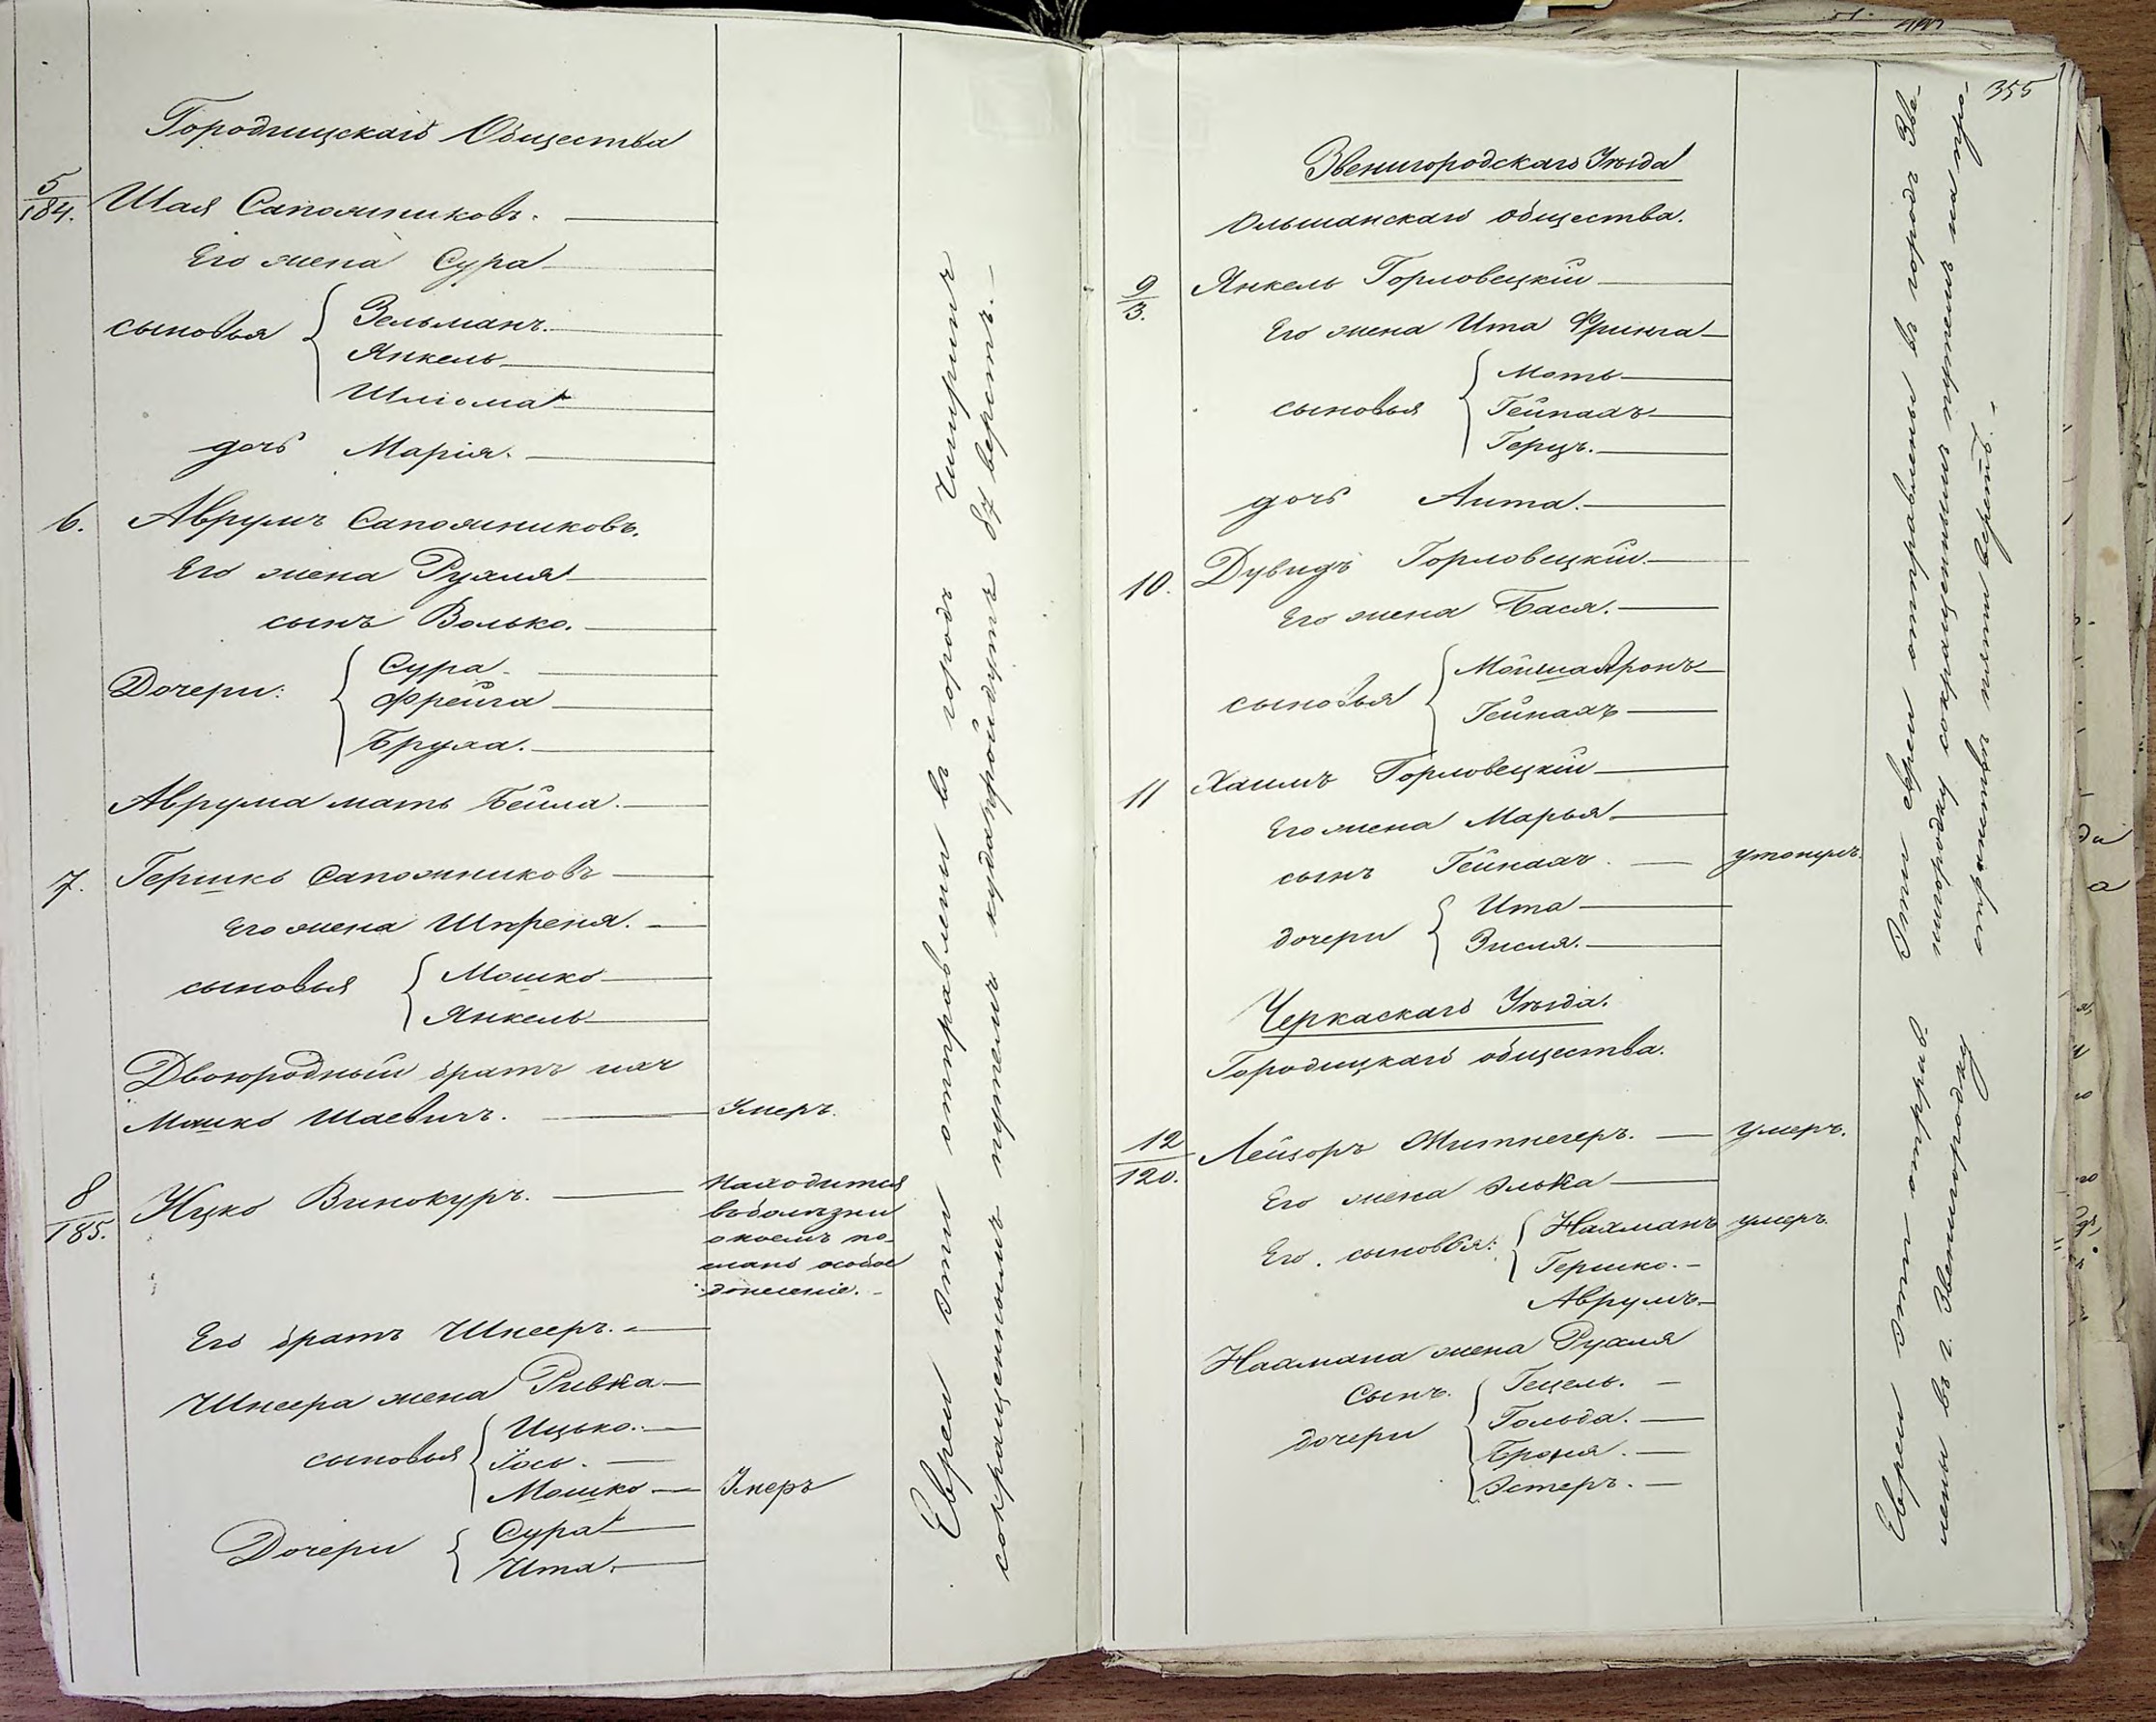 Городищскаго Общества
5
184.
Шая Сапожниковъ.
Его жена Сура
сыновья
Зельманъ.
Янкель
Шліома
дочь Марія.
6. Аврумъ Сапожниковъ.
Его жена Рухля
сынъ Волько.
Дочери:
Сура
Фрейга
Бруха.
Аврума мать Бейла.
7. Гершко Сапожниковъ
Его жена Шпреня.
сыновья
Мошко
Янкель
Двоюродный братъ ихъ
Мошко Шаевичъ. Умеръ.
8
185.
Ицко Винокуръ.
Находится
въ болезни
о коемъ по-
особое
донесеніе.
Его братъ Шнееръ.
Шнеера жена Ривка
сыновья
Ицько.
Іось.
Мошко Умеръ
Дочери
Сура
Ита.
Евреи эти отправлены въ городъ Чигиринъ
сокращеннымъ путемъ куда пройдутъ 87 верстъ.
355
Звенигородскаго Уѣзда
Ольшанскаго общества.
9
3.
Янкель Горловецкій
Его жена Ита Фринга
сыновья
Моть
Гейнахъ
Герцъ.
дочь Анта.
10. Дувидъ Горловецкій.
Его жена Бася.
сыновья
Мойша Аронъ
Гейнахъ
11 Хаимъ Горловецкій
Его жена Марья
сынъ Гейнахъ. утонулъ.
дочери
Ита
Зисля.
Черкаскаго Уѣзда.
Городищкаго общества.
12
120.
Лейзоръ Житнегеръ. умеръ.
Его жена Элька
Его сыновья:
Нахманъ умеръ.
Гершко.
Аврумъ
Нахмана жена Рухля
Сынъ. Гецель.
дочери
Гольда.
Броня.
Эстеръ.
Эти евреи отправлены въ городъ Зве-
нигородку сокращеннымъ путемъ на про-
странствѣ пяти верстъ.
Евреи эти отправ-
лены въ г. Звенигородку